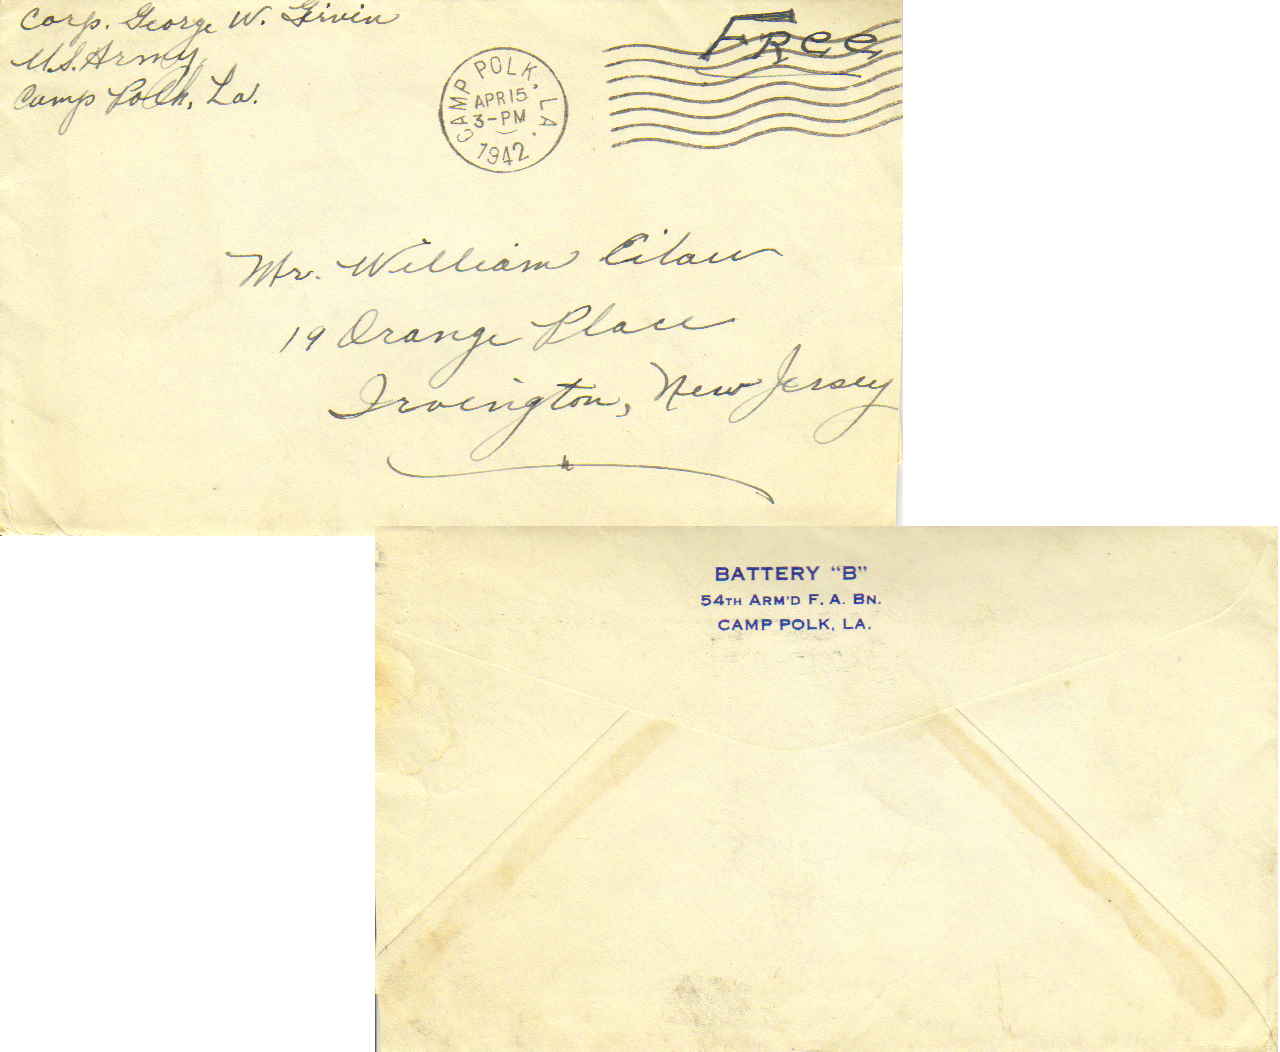 Corp. George W. Girvin
U.S. Army
Camp Polk, La.
Free
CAMP POLK, LA.
APR 15
3-PM
1942
Mr. William
19 Orange Place
Irvington, New Jersey
BATTERY "B"
54TH ARM'D F. A. BN.
CAMP POLK, LA.